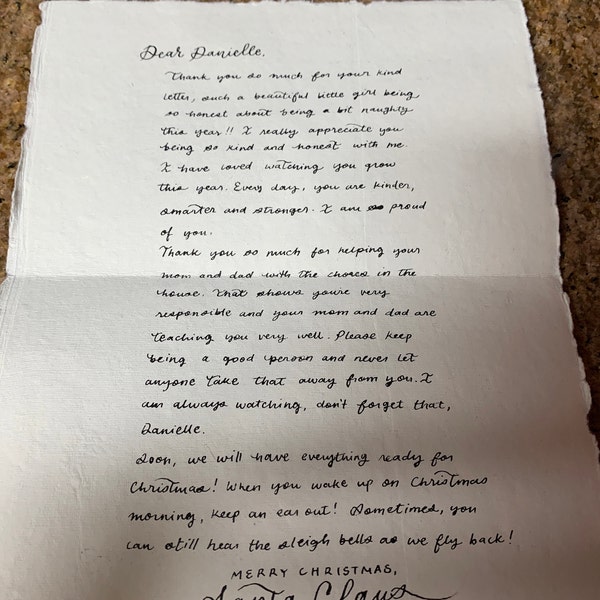 Dear Danielle,
Thank you so much for your kind
letter, such a beautiful little girl being
so honest about being a bit naughty
this year!! I really appreciate you
being so kind and honest with me.
I have loved watching you grow
this year. Every day, you are kinder,
smarter and stronger. I am so proud
of you.
Thank you so much for helping your
mom and dad with the chores in the
house. That shows you're very
responsible and your mom and dad are
teaching you very well. Please keep
being a good person and never let
anyone take that away from you. I
am always watching, don't forget that,
Danielle.
Soon, we will have everything ready for
Christmas! When you wake up on Christmas
morning, keep an ear out! Sometimes, you
can still hear the sleigh bells as we fly back!
MERRY CHRISTMAS,
Santa Claus